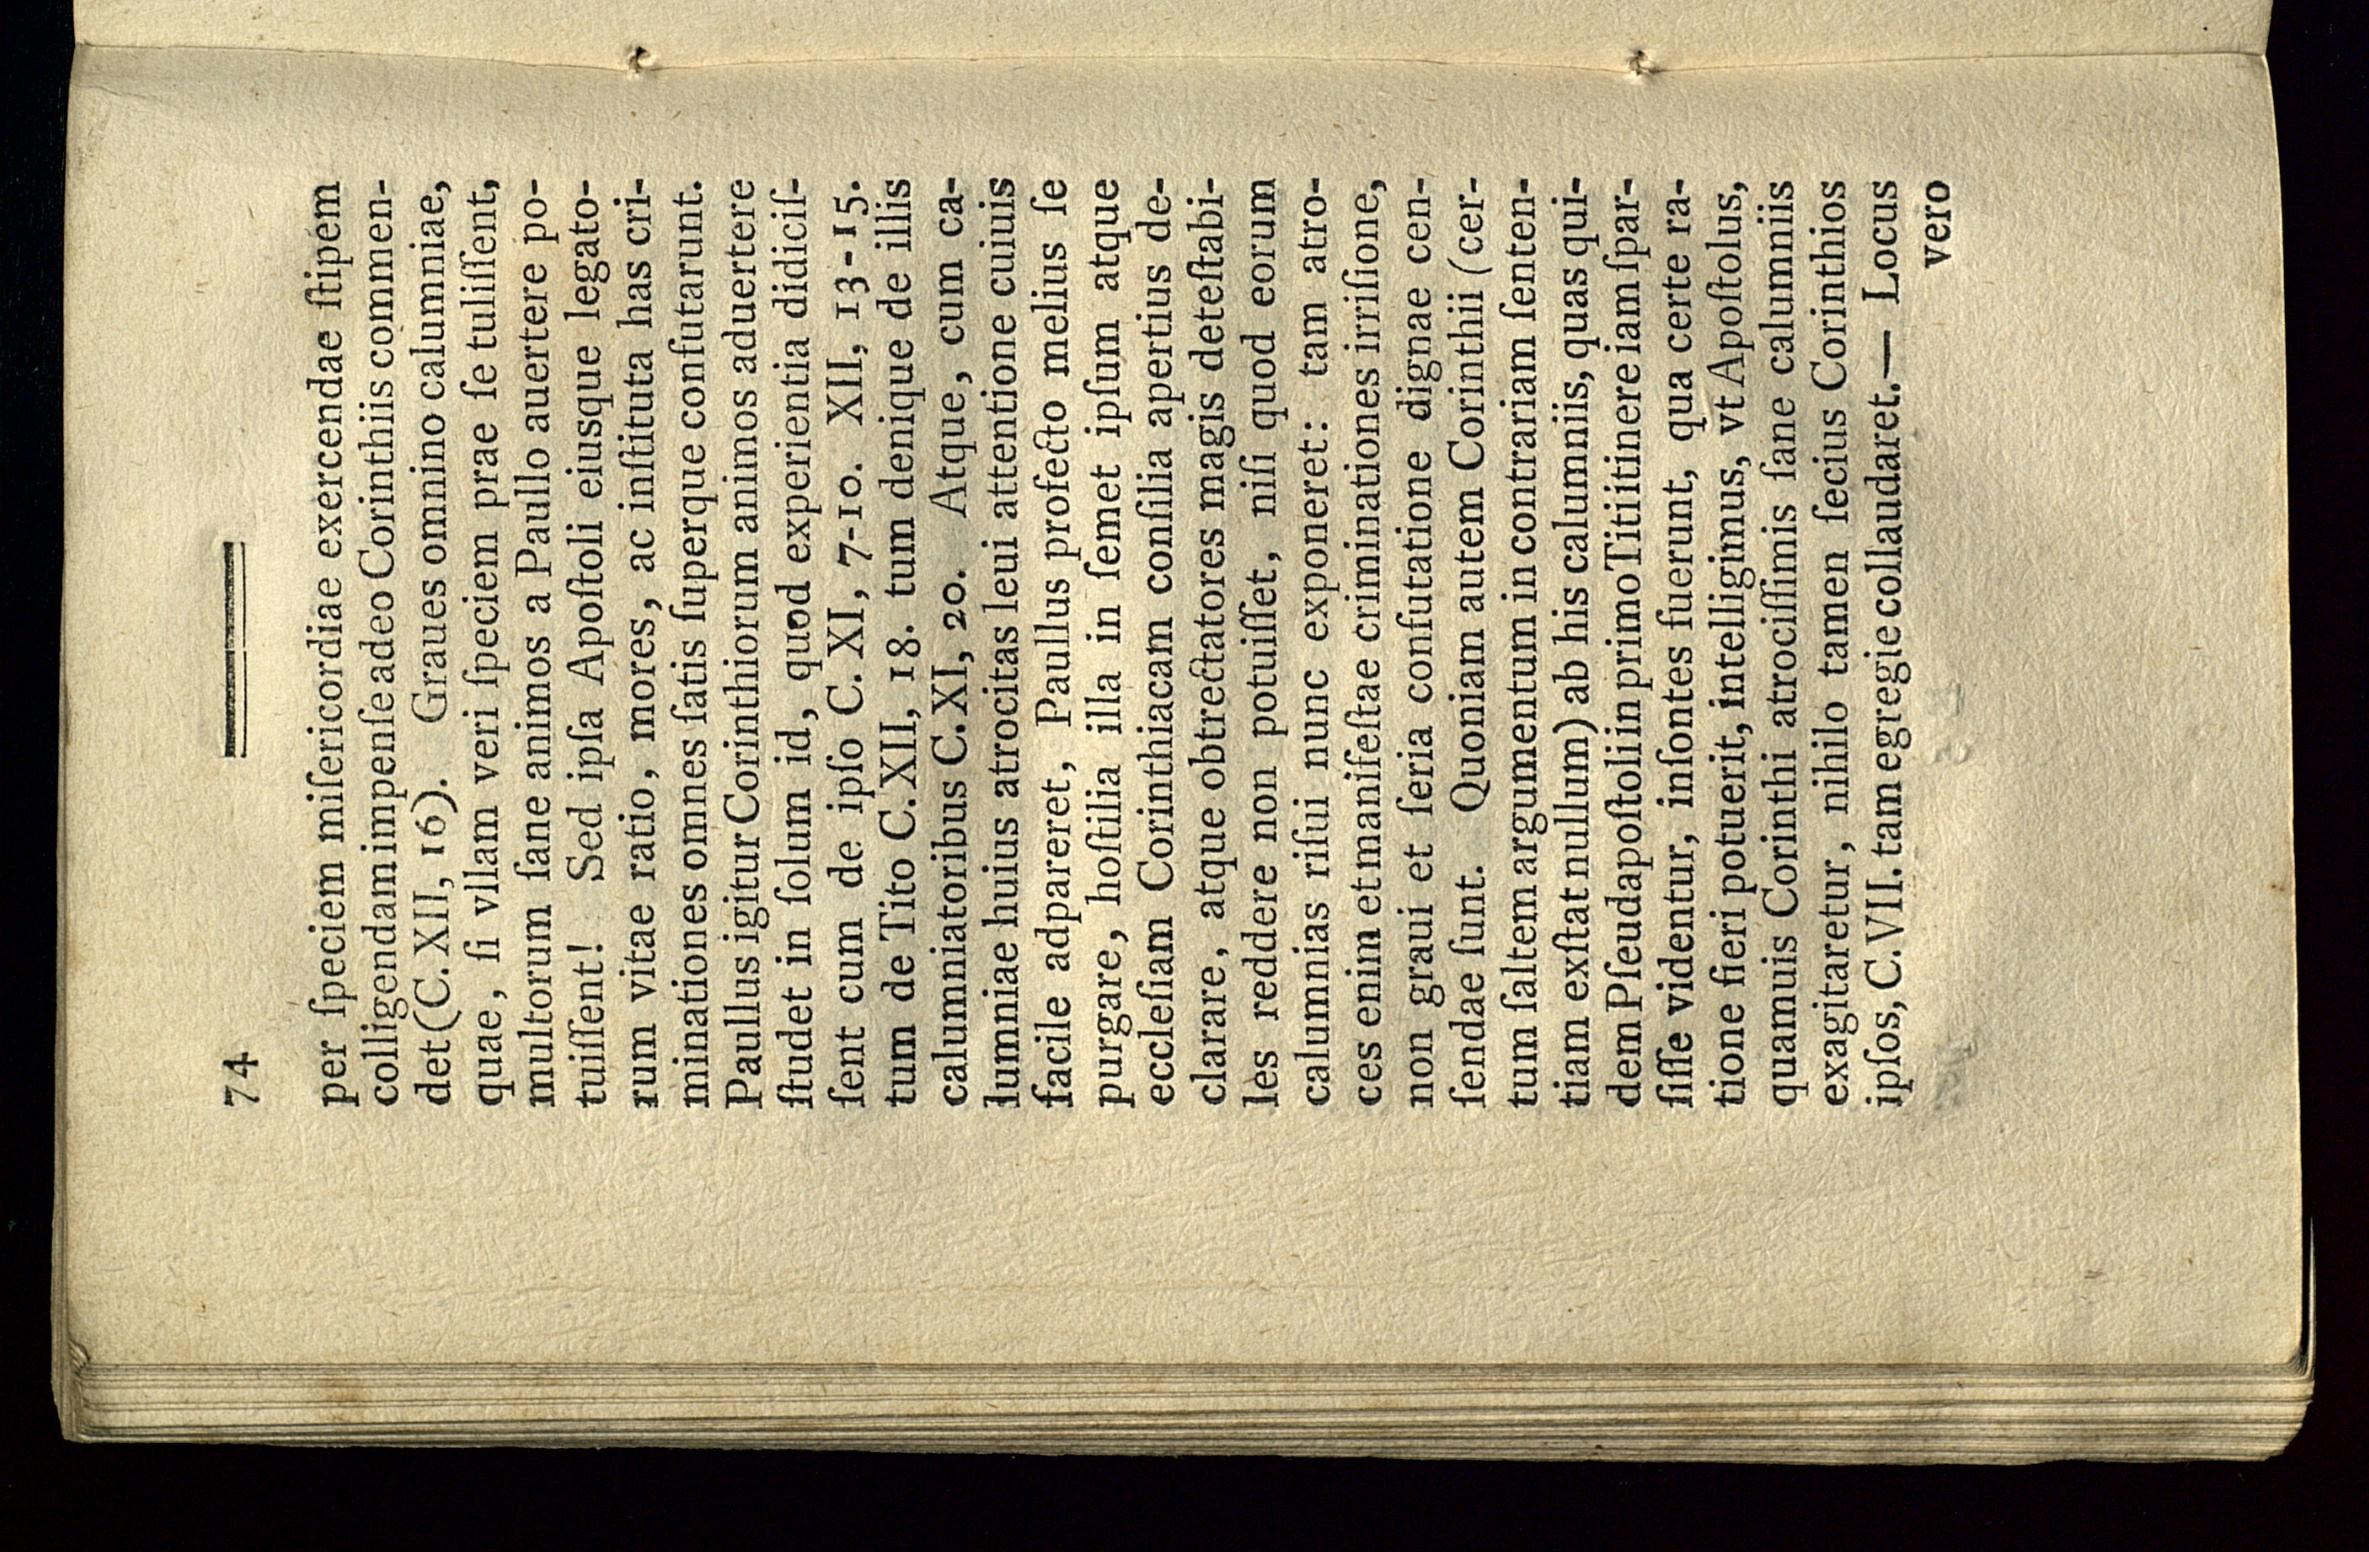 74
per ſpeciem miſericordiae exercendae ſtipem
colligendam impenſe adeo Corinthiis commen-
det (C. XII, 16). Graues omnino calumniae,
quae, ſi vllam veri ſpeciem prae ſe tuliſſent,
multorum ſane animos a Paullo auertere po-
tuiſſent! Sed ipſa Apoſtoli eiusque legato-
rum vitae ratio, mores, ac inſtituta has cri-
minationes omnes ſatis ſuperque confutarunt.
Paullus igitur Corinthiorum animos aduertere
ſtudet in ſolum id, quod experientia didiciſ-
ſent cum de ipſo C. XI, 7-10. XII, 13-15.
tum de Tito C. XII, 18. tum denique de illis
calumniatoribus C. XI, 20. Atque, cum ca-
lumniae huius atrocitas leui attentione cuiuis
facile adpareret, Paullus profecto melius ſe
purgare, hoſtilia illa in ſemet ipſum atque
eccleſiam Corinthiacam conſilia apertius de-
clarare, atque obtrectatores magis deteſtabi-
les reddere non potuiſſet, niſi quod eorum
calumnias riſui nunc exponeret: tam atro-
ces enim et manifeſtae criminationes irriſione,
non graui et ſeria confutatione dignae cen-
ſendae ſunt. Quoniam autem Corinthii (cer-
tum ſaltem argumentum in contrariam ſenten-
tiam exſtat nullum) ab his calumniis, quas qui-
dem Pſeudapoſtoli in primo Titi itinere iam ſpar-
ſiſſe videntur, inſontes fuerunt, qua certe ra-
tione fieri potuerit, intelligimus, vt Apoſtolus,
quamuis Corinthi atrociſſimis ſane calumniis
exagitaretur, nihilo tamen ſecius Corinthios
ipſos, C. VII. tam egregie collaudaret.— Locus
vero